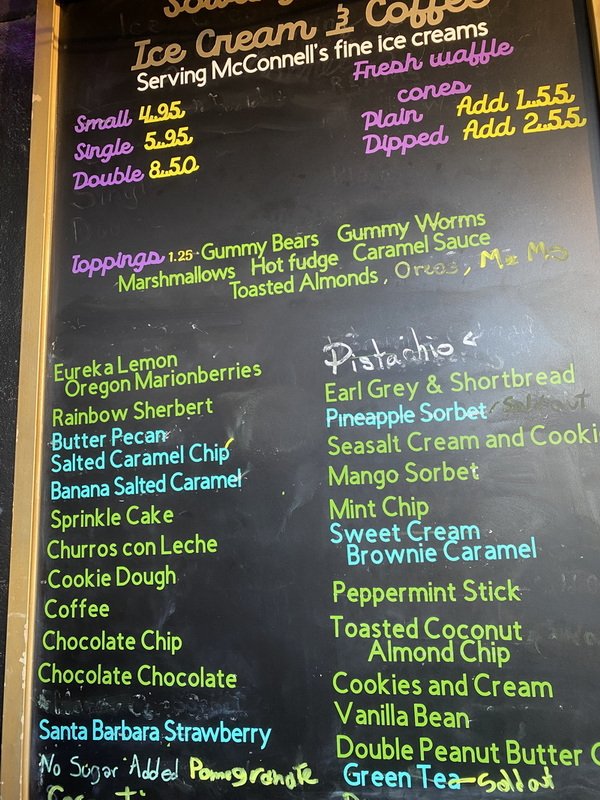 Ice Cream & Coffee
Serving McConnell's fine ice creams
Small 4.95
Single 5.95
Double 8.50
Fresh waffle
cones
Plain Add 1.55
Dipped Add 2.55
Toppings 1.25 · Gummy Bears Gummy Worms
Marshmallows Hot fudge Caramel Sauce
Toasted Almonds, Oreos, M & Ms
Eureka Lemon
Oregon Marionberries
Rainbow Sherbert
Butter Pecan
Salted Caramel Chip
Banana Salted Caramel
Sprinkle Cake
Churros con Leche
Cookie Dough
Coffee
Chocolate Chip
Chocolate Chocolate
Santa Barbara Strawberry
No Sugar Added Pomegranate
Pistachio
Earl Grey & Shortbread
Pineapple Sorbet - Sold out
Seasalt Cream and Cooki
Mango Sorbet
Mint Chip
Sweet Cream
Brownie Caramel
Peppermint Stick
Toasted Coconut
Almond Chip
Cookies and Cream
Vanilla Bean
Double Peanut Butter C
Green Tea - Sold out